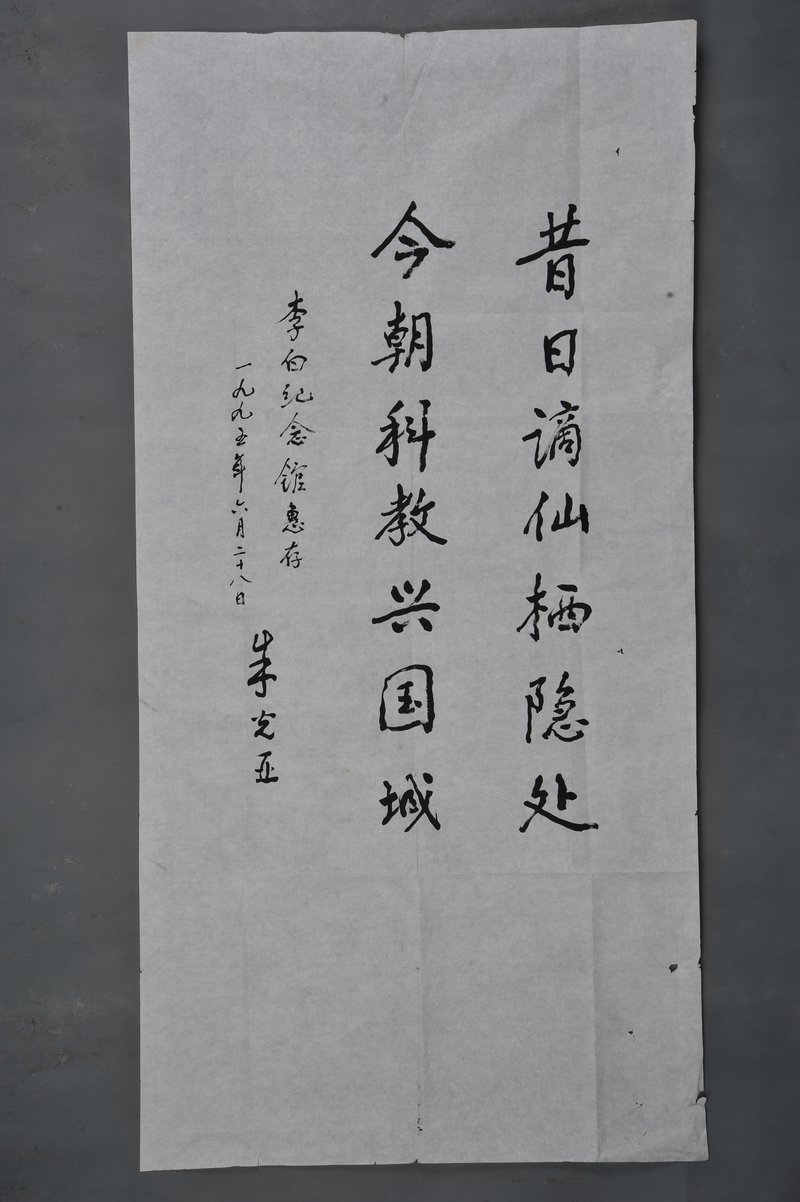 昔日谪仙栖隐处
今朝科教兴国城
李白纪念馆惠存
一九九五年六月二十八日
朱光亚